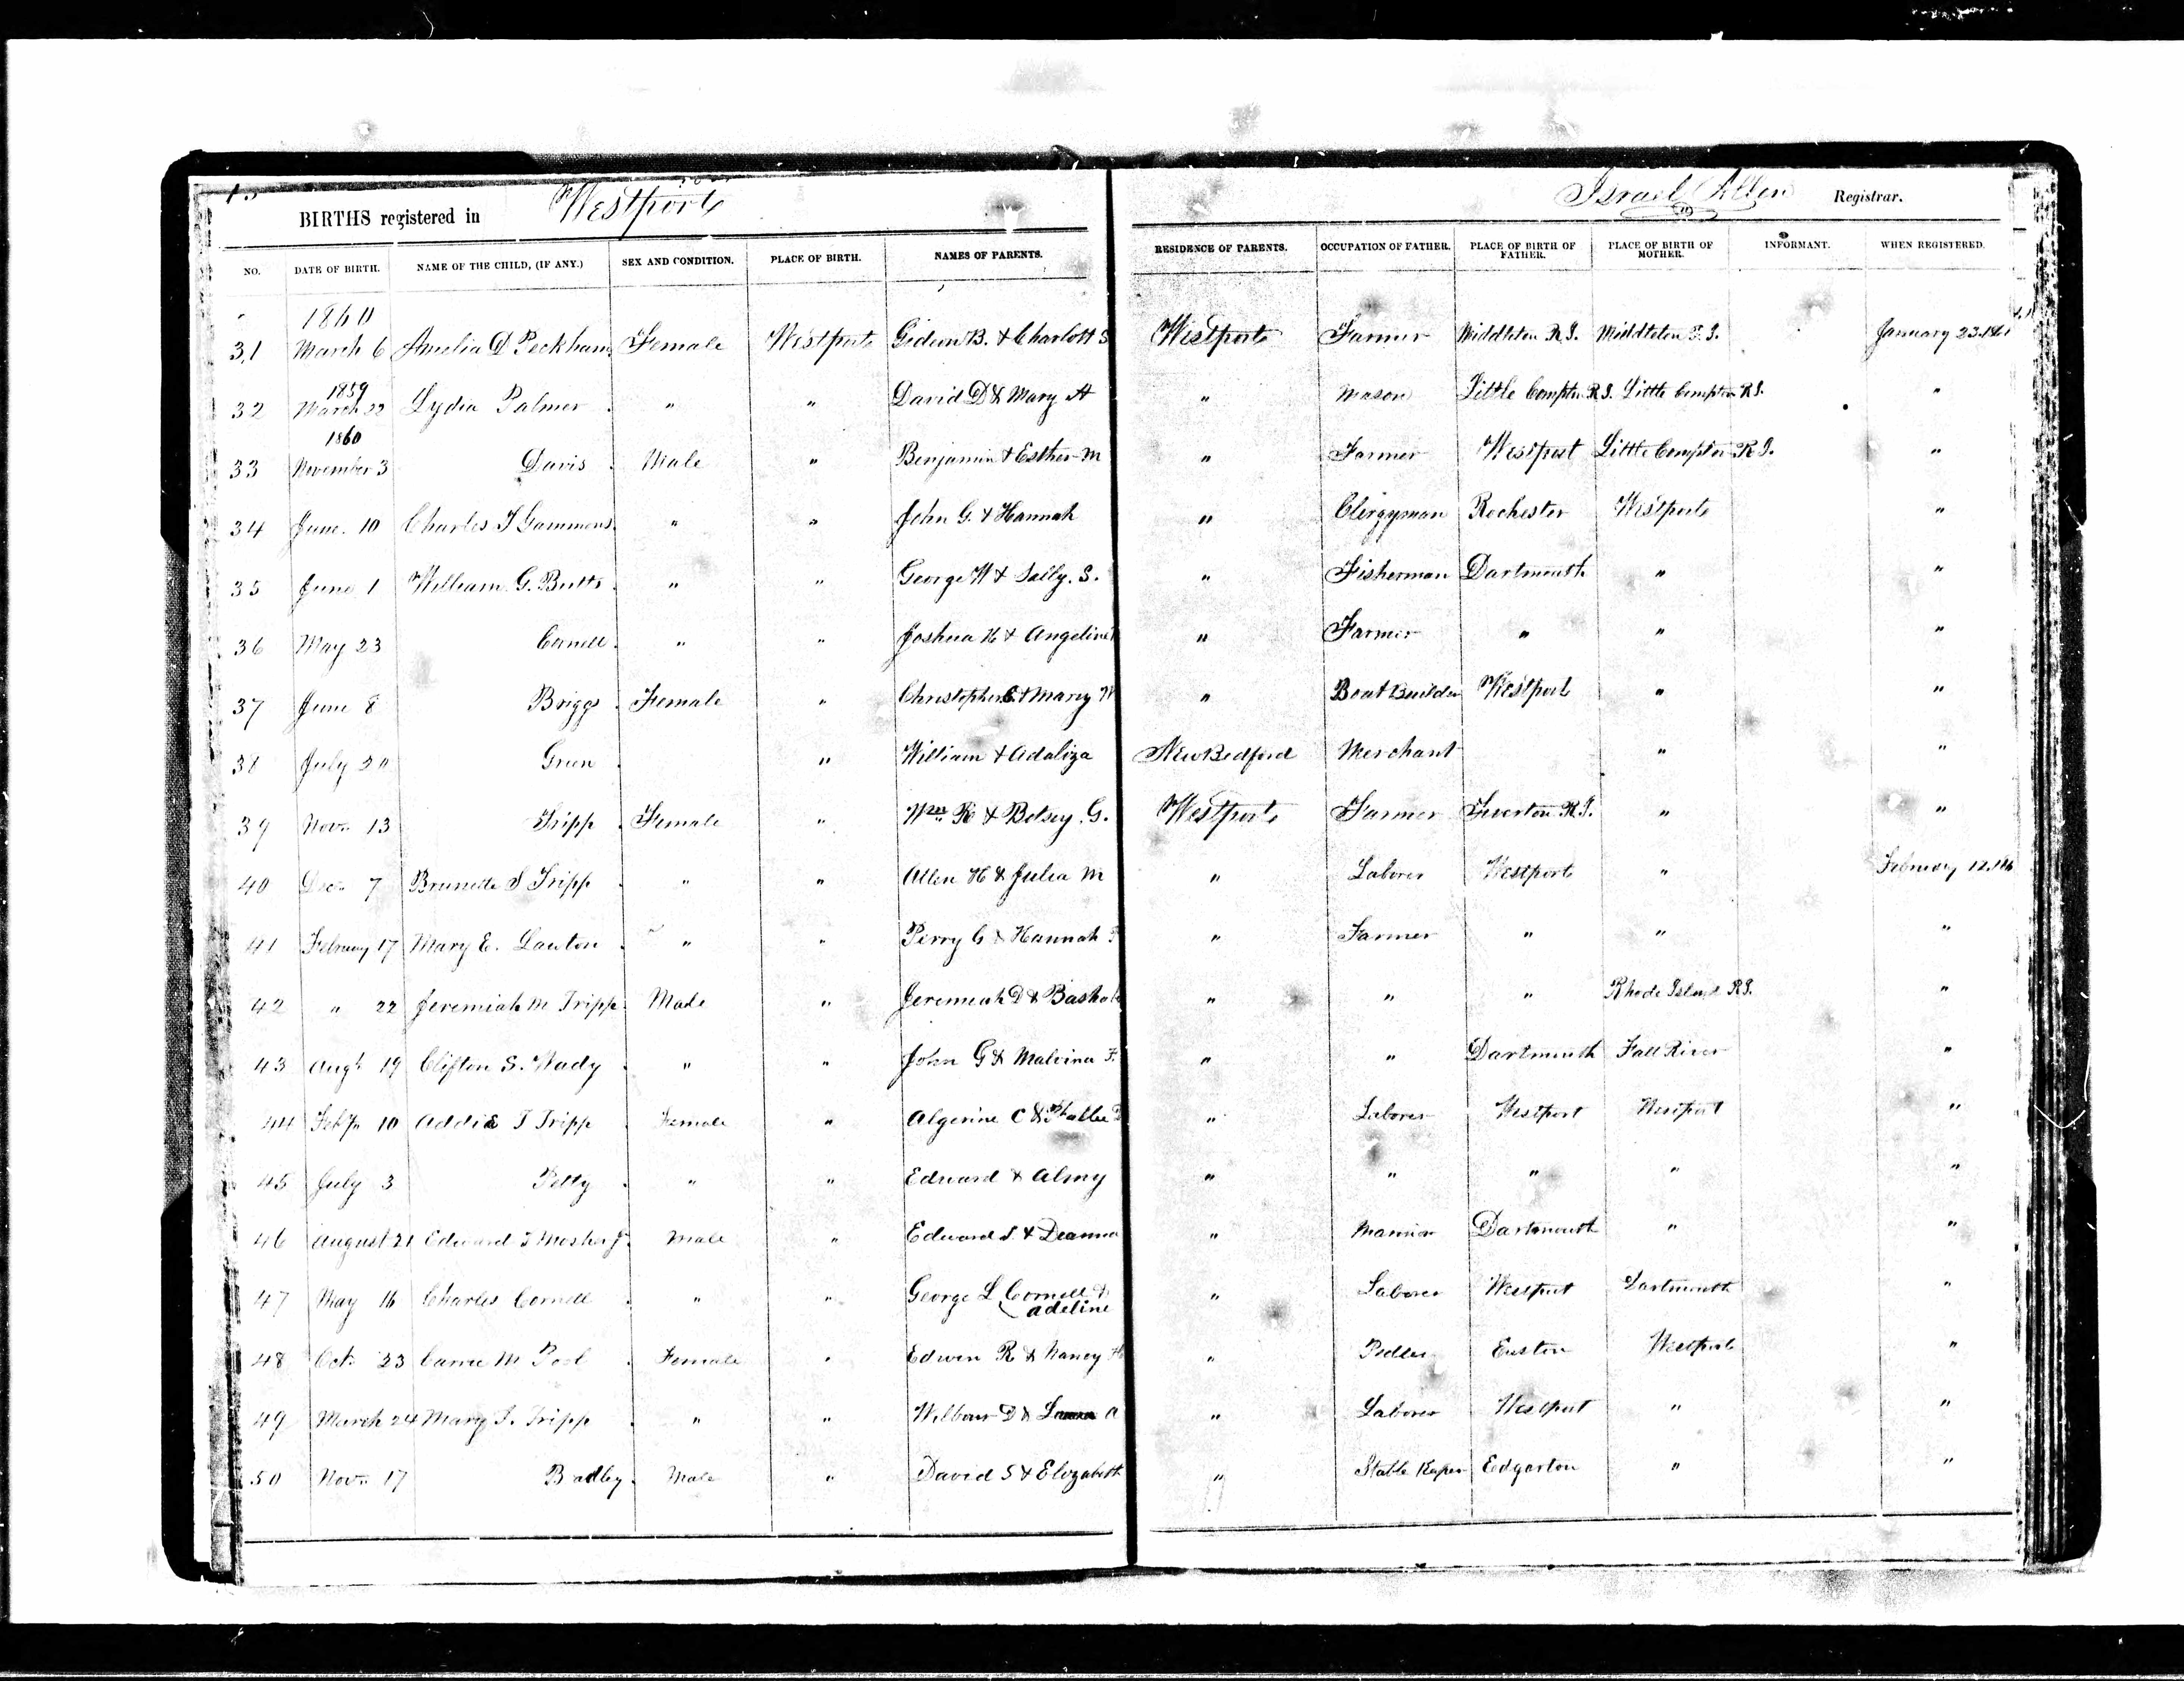 Westport
BIRTHS registered in
Israel Allen Registrar.
NO. DATE OF BIRTH. NAME OF THE CHILD, (IF ANY.) SEX AND CONDITION. PLACE OF BIRTH. NAMES OF PARENTS. RESIDENCE OF PARENTS. OCCUPATION OF FATHER. PLACE OF BIRTH OF FATHER. PLACE OF BIRTH OF MOTHER. INFORMANT. WHEN REGISTERED.
1860
31 March 6 Amelia D Peckham Female Westport Gideon B. & Charlott S Westport Farmer Middleton R I. Middleton R. I. January 23. 1861
1859
32 March 22 Lydia Palmer " " David D & Mary A " Mason Little Compton R I. Little Compton R I. "
1860
33 November 3 Davis Male " Benjamin & Esther M " Farmer Westport Little Compton R I. "
34 June. 10 Charles T Gammons " " John G. & Hannah " Clergyman Rochester Westport "
35 June 1 William. G. Butts " " George W & Sally. S. " Fisherman Dartmouth " "
36 May 23 Cornell " " Joshua H & Angeline " Farmer " " "
37 June 8 Briggs Female " Christopher C & Marcy W " Boat Builder Westport " "
38 July 20 Green " William & Adaliza New Bedford Merchant " "
39 Nov. 13 Tripp Female " Wm R & Betsey. G. Westport Farmer Tiverton R. I. " "
40 Dec. 7 Brunette S Tripp " " Allen H & Julia M " Laborer Westport " February 12. 186
41 February 17 Mary E. Lawton " " Perry G & Hannah " Farmer " " "
42 " 22 Jeremiah M Tripp Male " Jeremiah D & " " " Rhode Island R I. "
43 Augt 19 Clifton S. Wady " " John G & Malvina F. " " Dartmouth Fall River "
44 Feby 10 Addie T Tripp Female " Algerine C & " Laborer Westport Westport "
45 July 3 Petty " " Edward & Almy " " " " "
46 August 21 Edward S Mosher Jr. Male " Edward S & Deanna " Mariner Dartmouth " "
47 May 16 Charles Cornell " " George L Cornell & " Laborer Westport Dartmouth "
adeline
48 Oct. 23 Carrie M Pool Female " Edwin R & Nancy H " Pedler Easton Westport "
49 March 24 Mary S. Tripp " " Wilbour D & A " Laborer Westport " "
50 Nov. 17 Bradley Male " David S & Elizabeth " Stable Keeper Edgarton " "